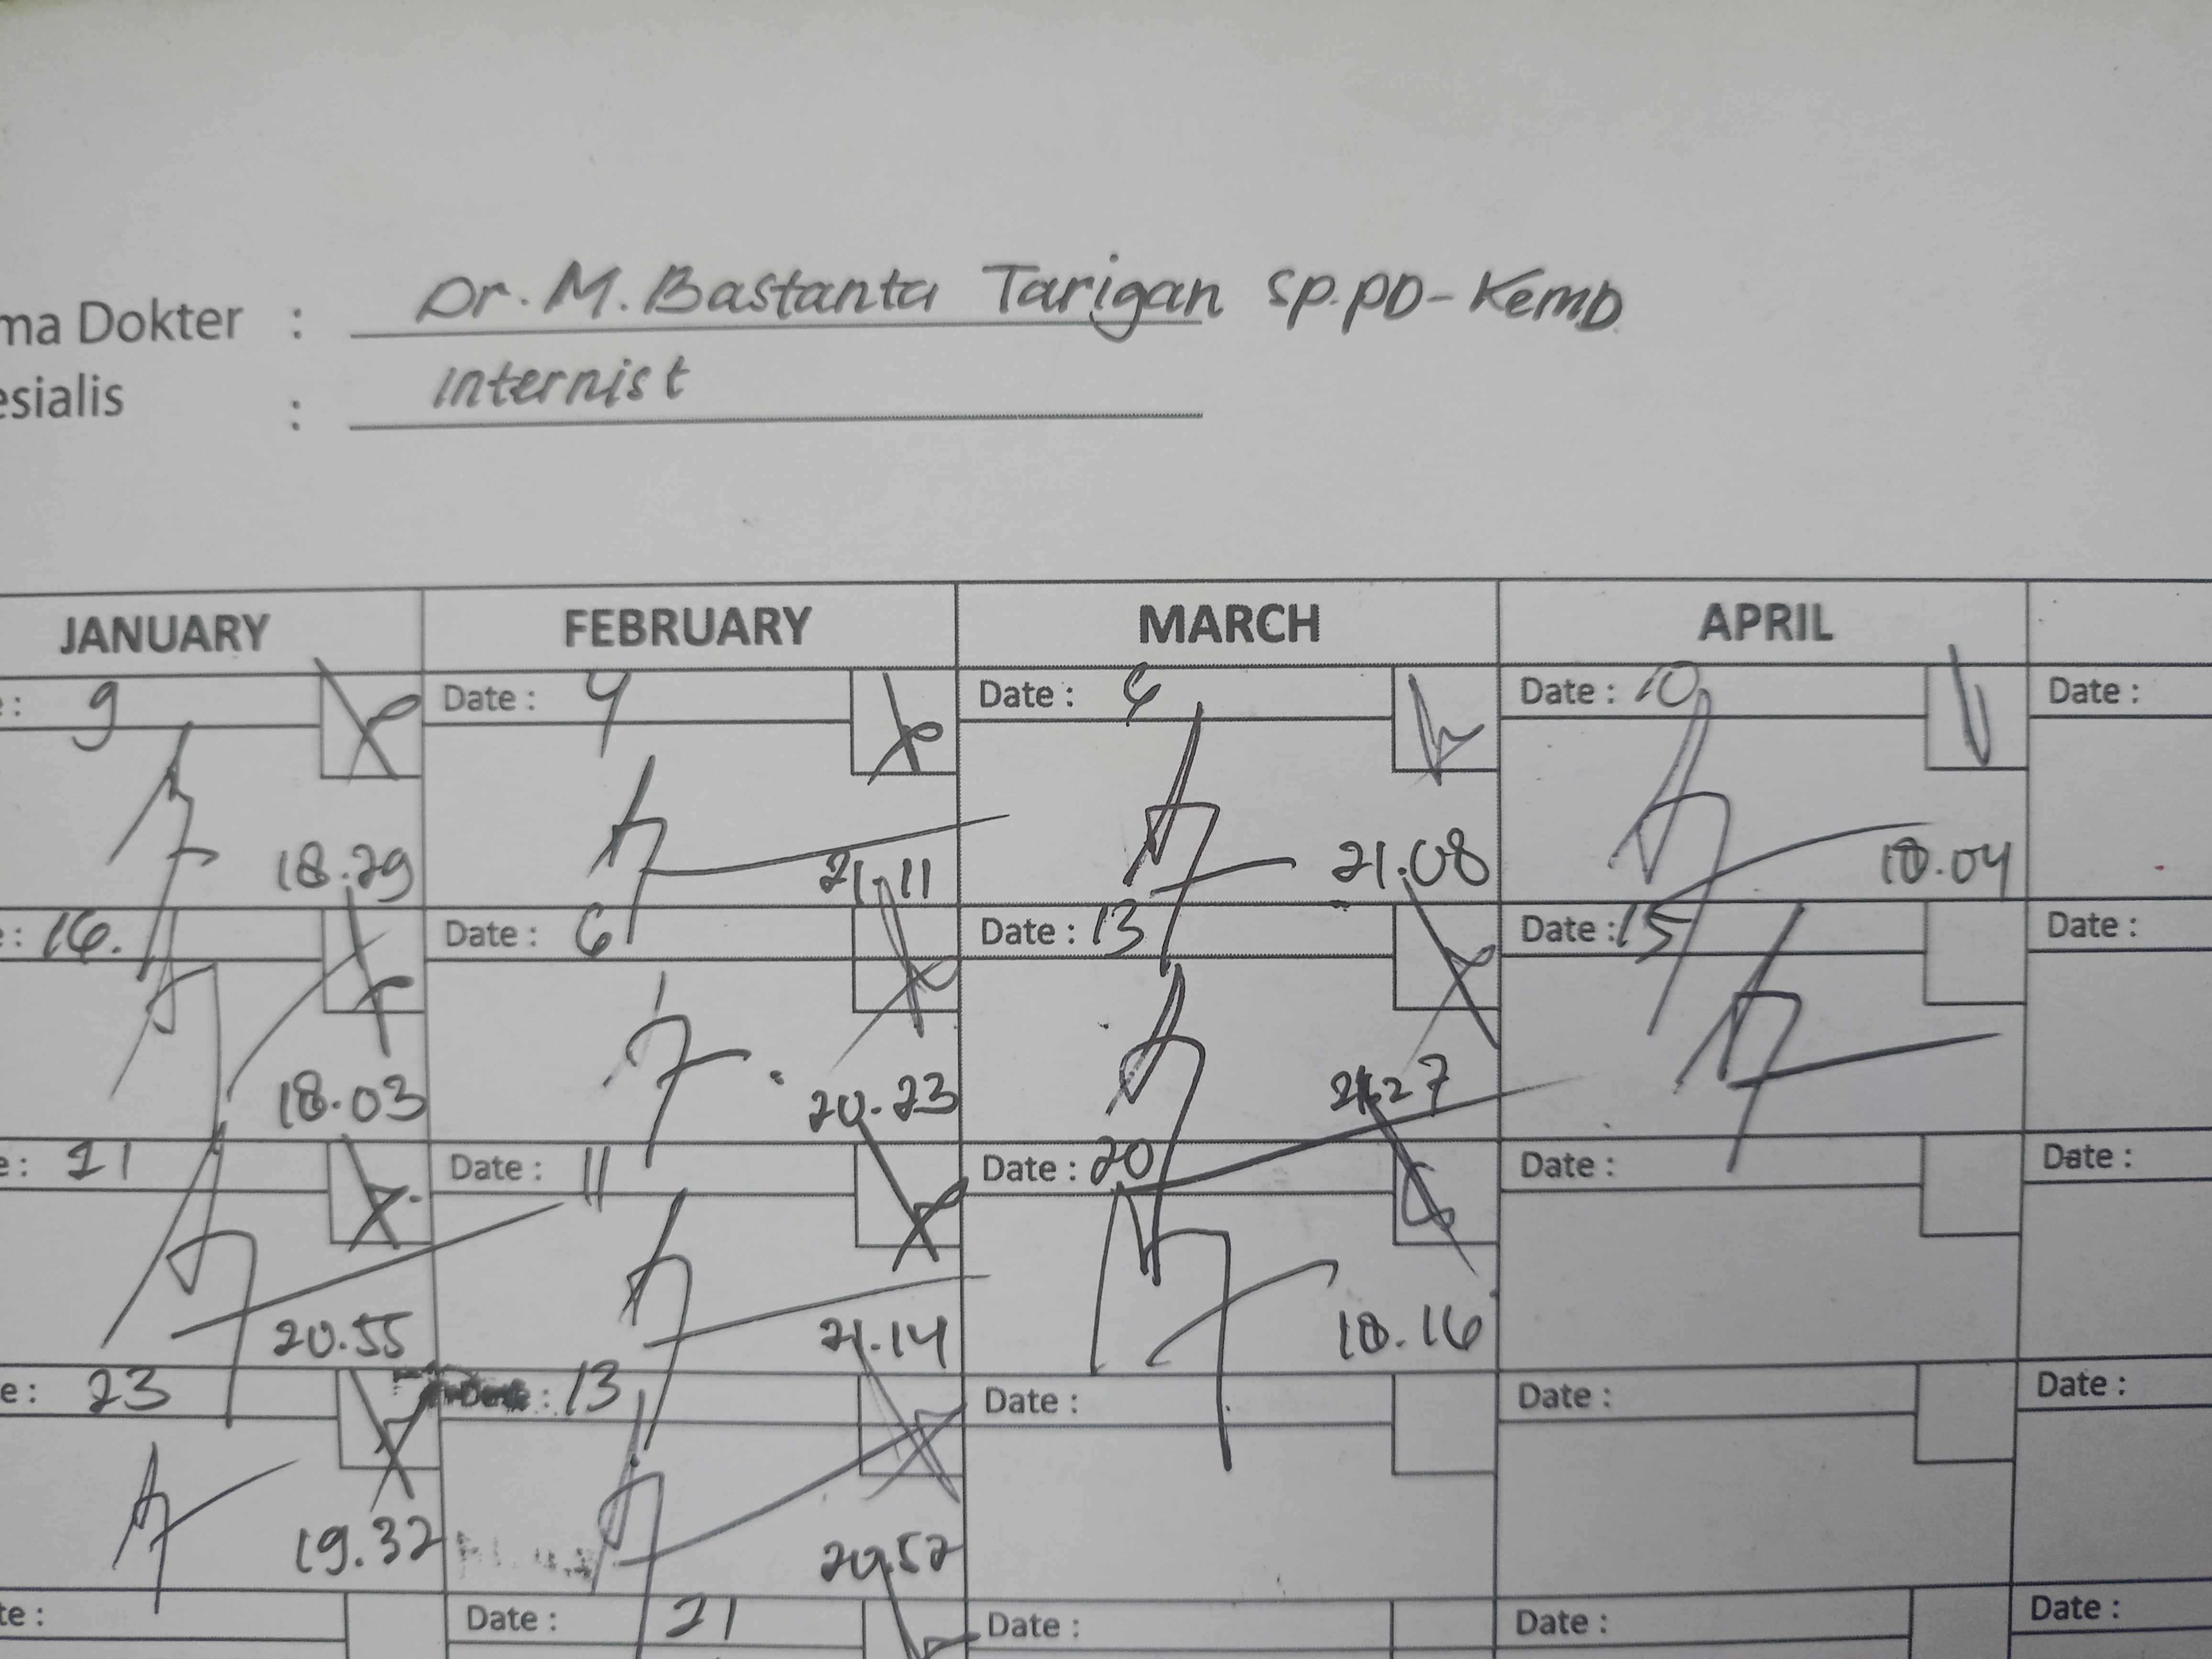 ma Dokter : Dr. M. Bastanta Tarigan Sp.PD-Kemd
esialis : Internist
JANUARY FEBRUARY MARCH APRIL
: 9 Date : 4 Date : 6 Date : 10 Date :
18.29 21.11 21.08 18.04
: 16. Date : 6 Date : 13 Date : 15 Date :
18.03 20.23 21.27
e: 21 Date : 11 Date : 20 Date : Date :
20.55 21.14 18.16
e: 23 Date : 13 Date : Date : Date :
19.32 20.52
te : Date : 21 Date : Date : Date :